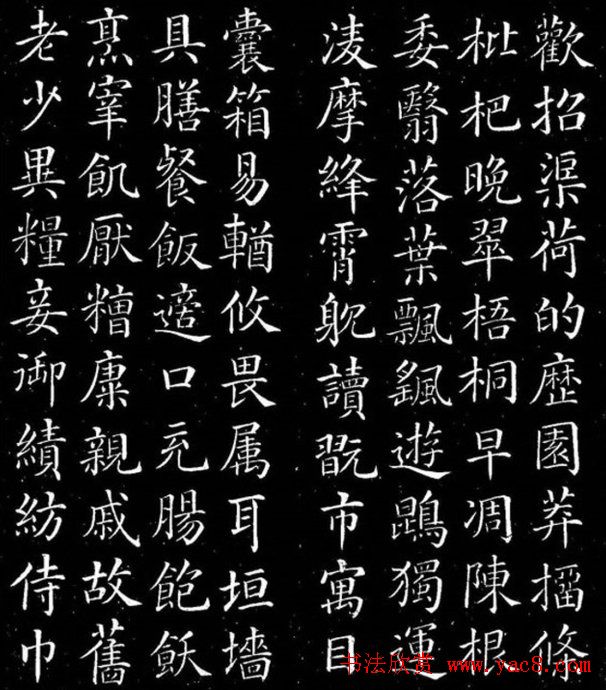 歡招渠荷的歷園莽㨨條
枇杷晚翠梧桐早凋陳根
委翳落葉飄颻遊鵾獨運
凌摩絳霄躭讀翫市寓目
囊箱易輶攸畏属耳垣墻
具膳餐飯適口充腸飽飫
烹宰飢厭糟糠親戚故舊
老少異糧妾御績紡侍巾
书法欣赏 www.yac8.com